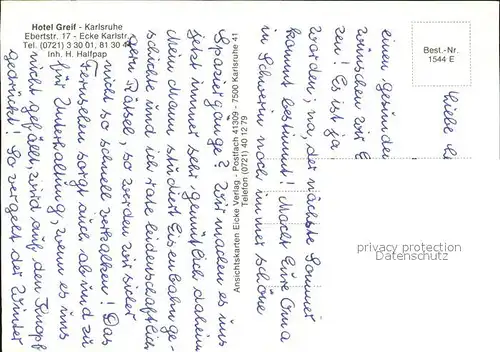 Hotel Greif - Karlsruhe
Ebertstr. 17 - Ecke Karlstr.
Tel. (0721) 3 30 01, 81 30 4
Inh. H. Halfpap
Best.-Nr.
1544 E
Liebe
einen gesunden
wünschen wir
zen! Es ist ja
worden; na, der nächste Sommer
kommt bestimmt! Macht Eure Oma
in Schwerin noch immer schöne
Spaziergänge? Wir machen es uns
jetzt immer sehr gemütlich daheim
mein Mann studiert Eisenbahnge-
schichte und ich rate leidenschaftlich
gern Rätsel, so werden wir sicher
nicht so schnell verkalken! Das
Fernsehen sorgt auch ab und zu
für Unterhaltung, wenn es uns
nicht gefällt wird auf den Knopf
gedrückt! So vergeht der Winter
Ansichtskarten Eicke Verlag - Postfach 41309 - 7500 Karlsruhe 41
Telefon (0721) 40 12 79
privacy protection
watermark